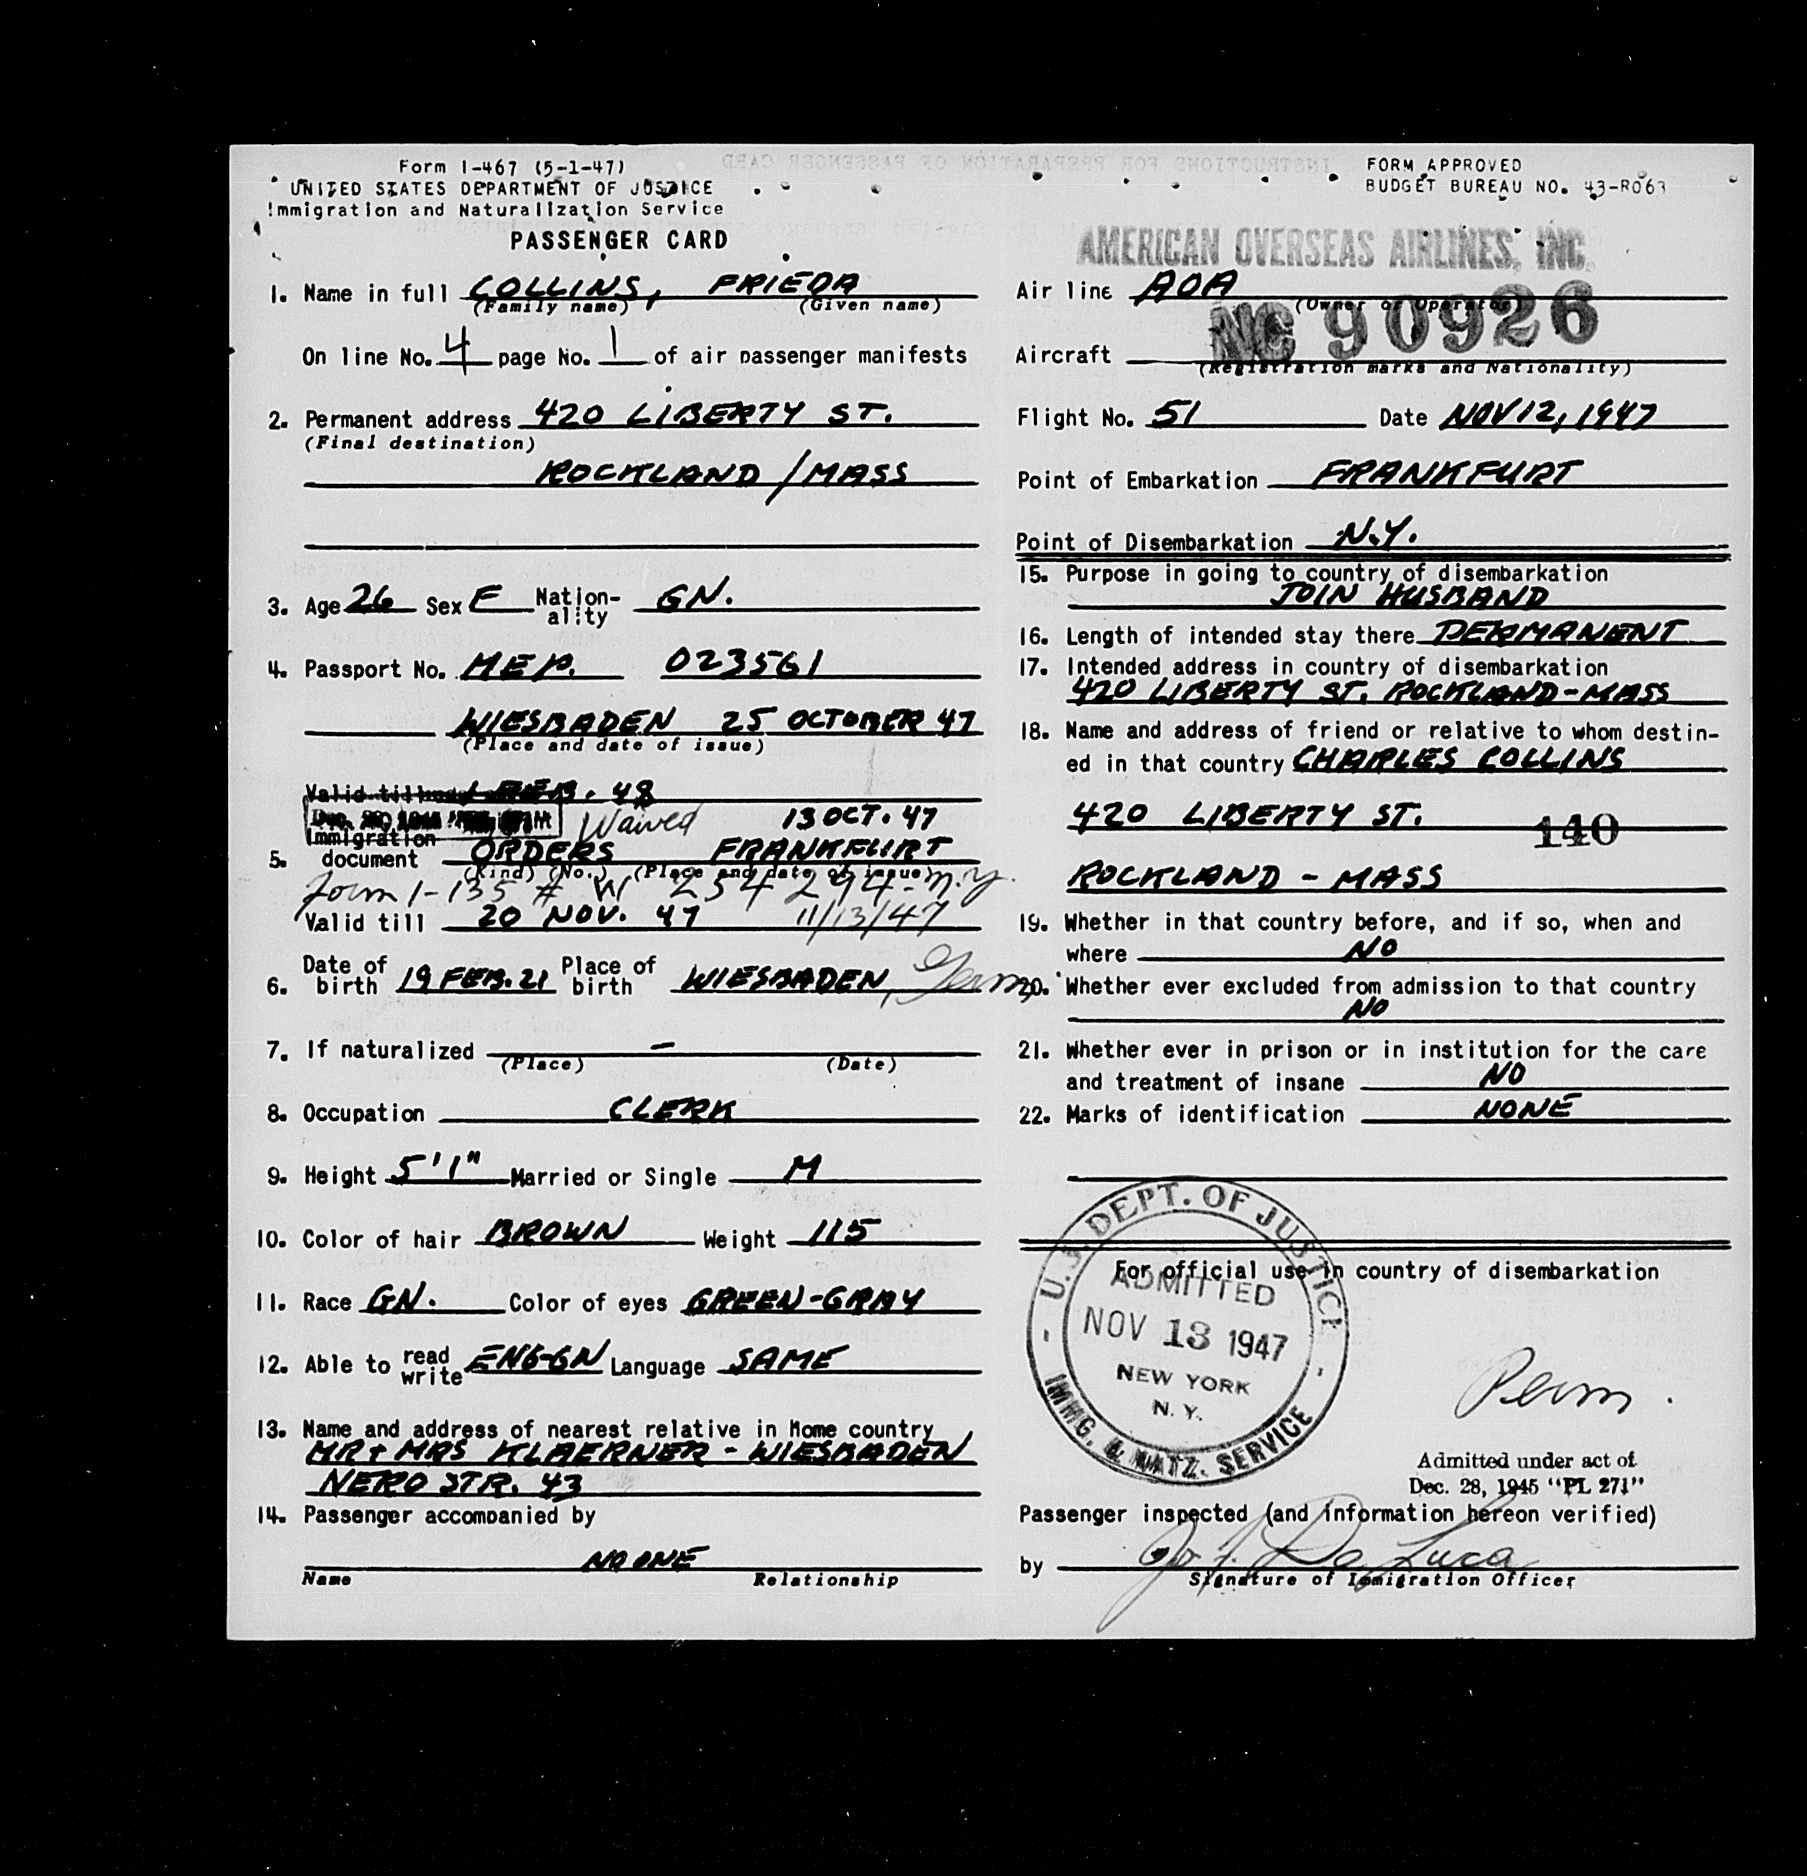 Form I-467 (5-1-47)
UNITED STATES DEPARTMENT OF JUSTICE
Immigration and Naturalization Service
PASSENGER CARD
1. Name in full COLLINS, FRIEDA
(Family name) (Given name)
On line No. 4 page No. 1 of air passenger manifests
2. Permanent address 420 LIBERTY ST.
(Final destination)
ROCKLAND / MASS
3. Age 26 Sex F Nation-ality GN.
4. Passport No. MEP. 023561
WIESBADEN 25 OCTOBER 47
(Place and date of issue)
Valid till FEB. 48
Waived 13 OCT. 47
5. Immigration document ORDERS FRANKFURT
(Kind) (No.) (Place and date of issue)
Form I-135 # W 254294-N.Y.
Valid till 20 NOV. 47 11/13/47
6. Date of birth 19 FEB. 21 Place of birth WIESBADEN, Germ.
7. If naturalized —
(Place) (Date)
8. Occupation CLERK
9. Height 5'1" Married or Single M
10. Color of hair BROWN Weight 115
11. Race GN. Color of eyes GREEN-GRAY
12. Able to read write ENG-GN Language SAME
13. Name and address of nearest relative in Home country
MR + MRS KLAERNER - WIESBADEN
NERO STR. 43
14. Passenger accompanied by
NO ONE
Name Relationship
FORM APPROVED
BUDGET BUREAU NO. 43-R063
AMERICAN OVERSEAS AIRLINES, INC.
Air line AOA
(Owner or Operator)
Aircraft NC 90926
(Registration marks and Nationality)
Flight No. 51 Date NOV 12, 1947
Point of Embarkation FRANKFURT
Point of Disembarkation N.Y.
15. Purpose in going to country of disembarkation
JOIN HUSBAND
16. Length of intended stay there PERMANENT
17. Intended address in country of disembarkation
420 LIBERTY ST. ROCKLAND-MASS
18. Name and address of friend or relative to whom destin-
ed in that country CHARLES COLLINS
420 LIBERTY ST.
140
ROCKLAND - MASS
19. Whether in that country before, and if so, when and
where NO
20. Whether ever excluded from admission to that country
NO
21. Whether ever in prison or in institution for the care
and treatment of insane NO
22. Marks of identification NONE
For official use in country of disembarkation
U.S. DEPT. OF JUSTICE
ADMITTED
NOV 13 1947
NEW YORK
N. Y.
IMMG. & NATZ. SERVICE
Perm.
Admitted under act of
Dec. 28, 1945 "PL 271"
Passenger inspected (and information hereon verified)
by De Luca
Signature of Immigration Officer